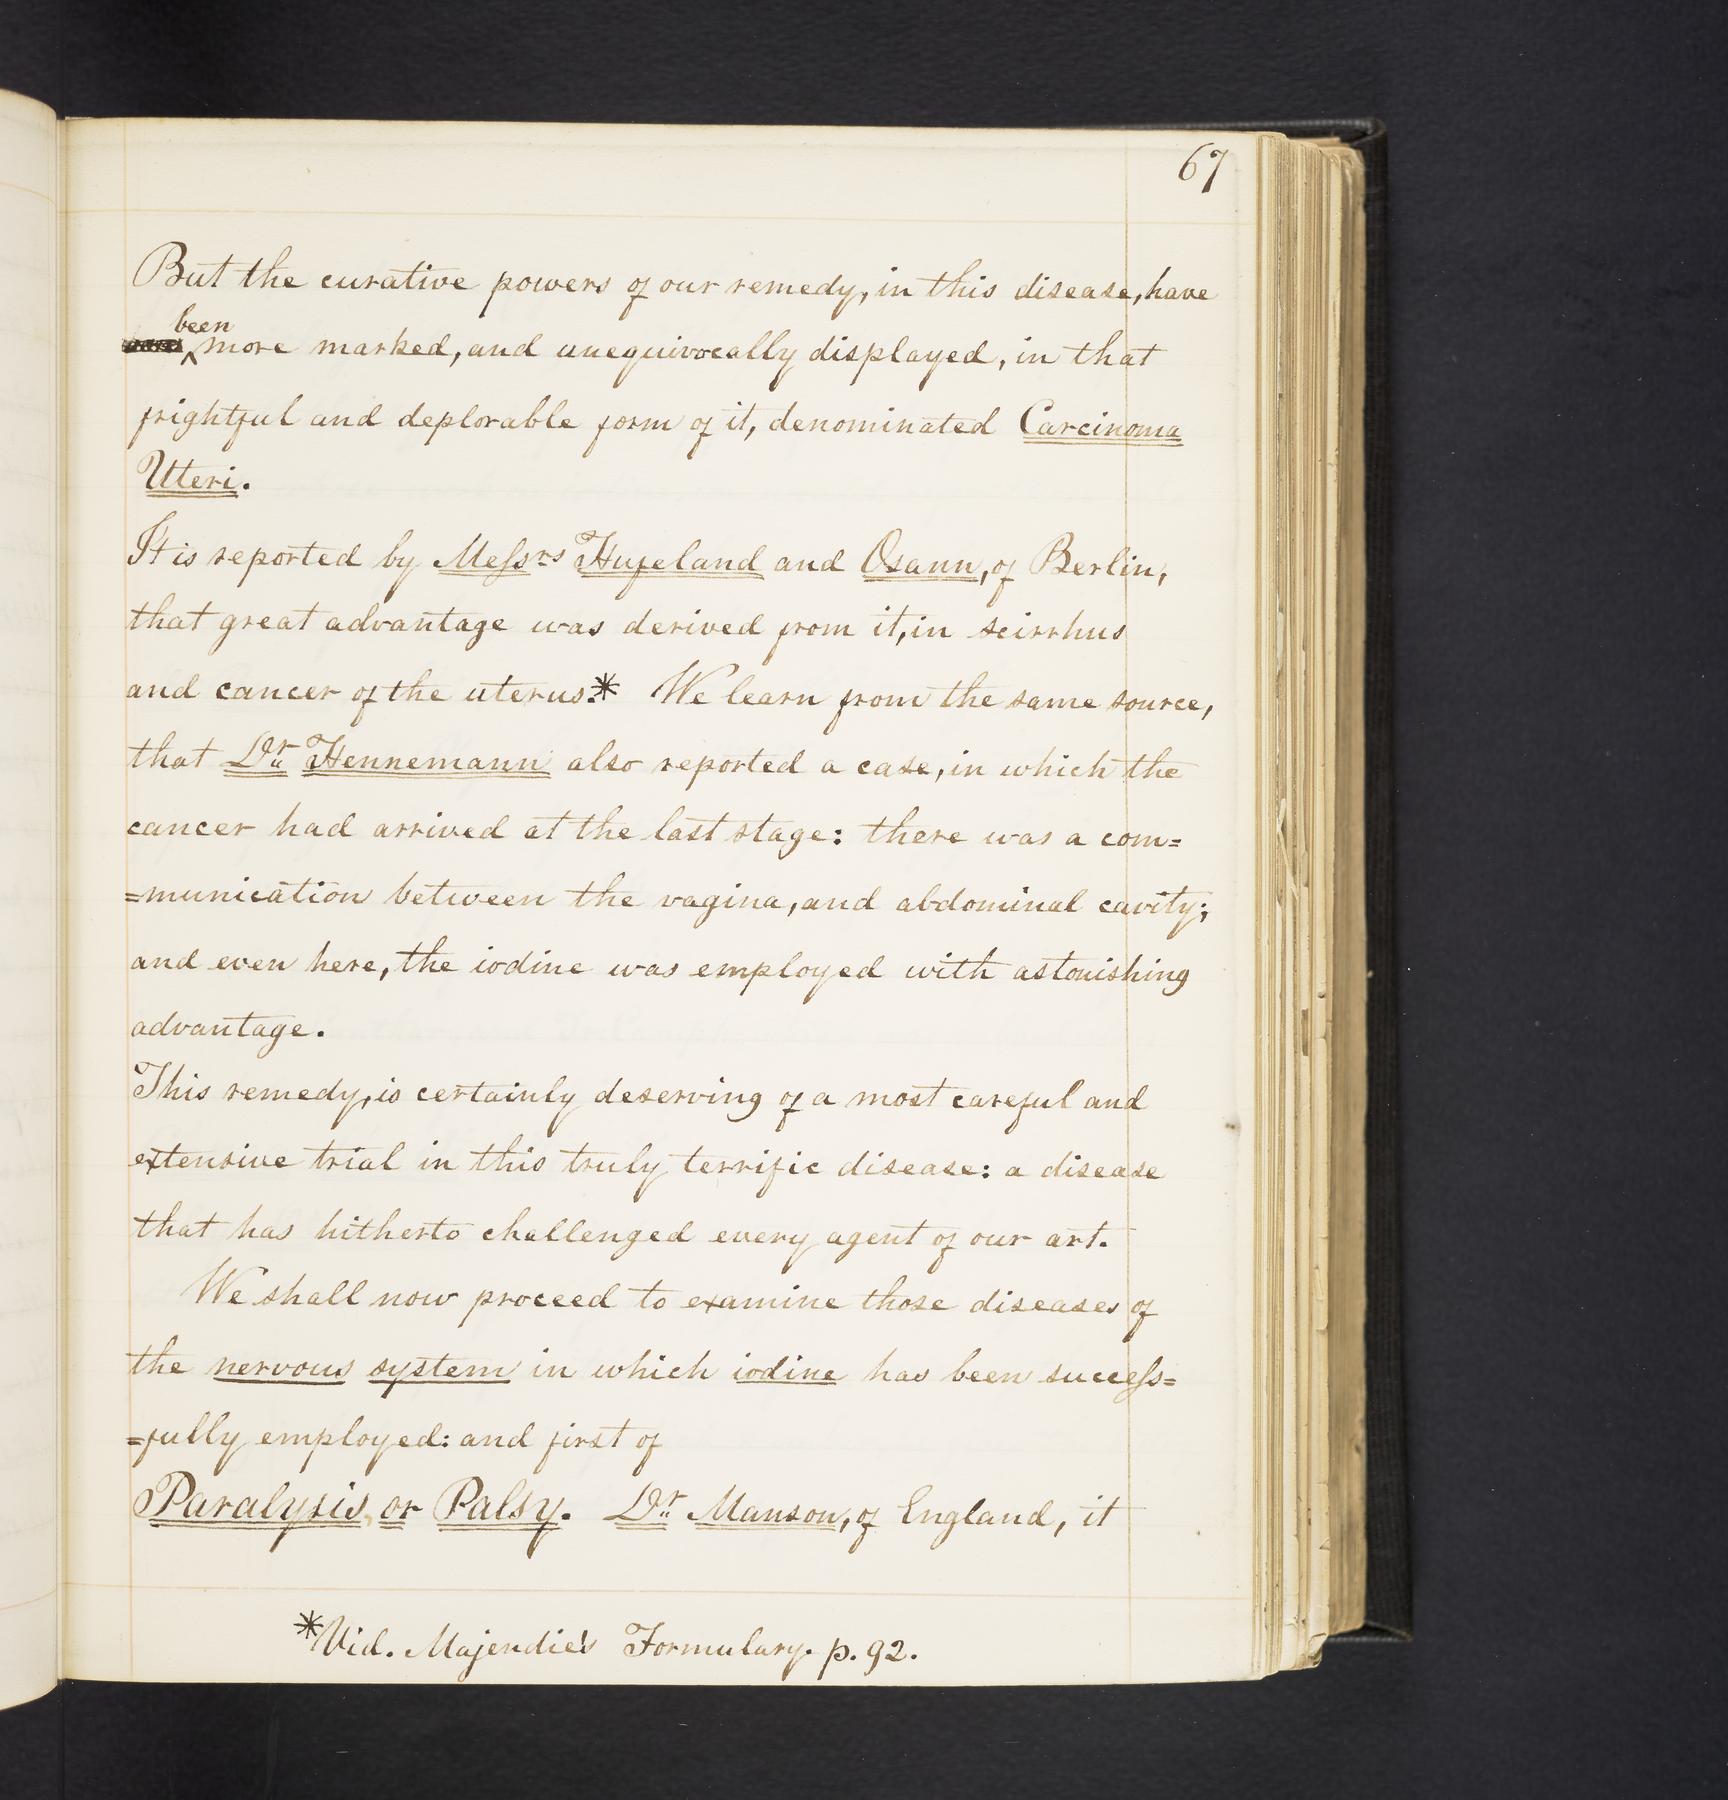 67
But the curative powers of our remedy, in this disease, have
been
more marked, and unequivocally displayed, in that
frightful and deplorable form of it, denominated Carcinoma
Uteri.
It is reported by Messrs Hufeland and Osann, of Berlin,
that great advantage was derived from it, in scirrhus
and cancer of the uterus.* We learn from the same source,
that Dr Hennemann also reported a case, in which the
cancer had arrived at the last stage: there was a com=
=munication between the vagina, and abdominal cavity;
and even here, the iodine was employed with astonishing
advantage.
This remedy, is certainly deserving of a most careful and
extensive trial in this truly terrific disease: a disease
that has hitherto challenged every agent of our art.
We shall now proceed to examine those diseases of
the nervous system in which iodine has been success=
=fully employed: and first of
Paralysis, or Palsy. Dr Manson, of England, it
*Vid. Majendie's Formulary. p. 92.